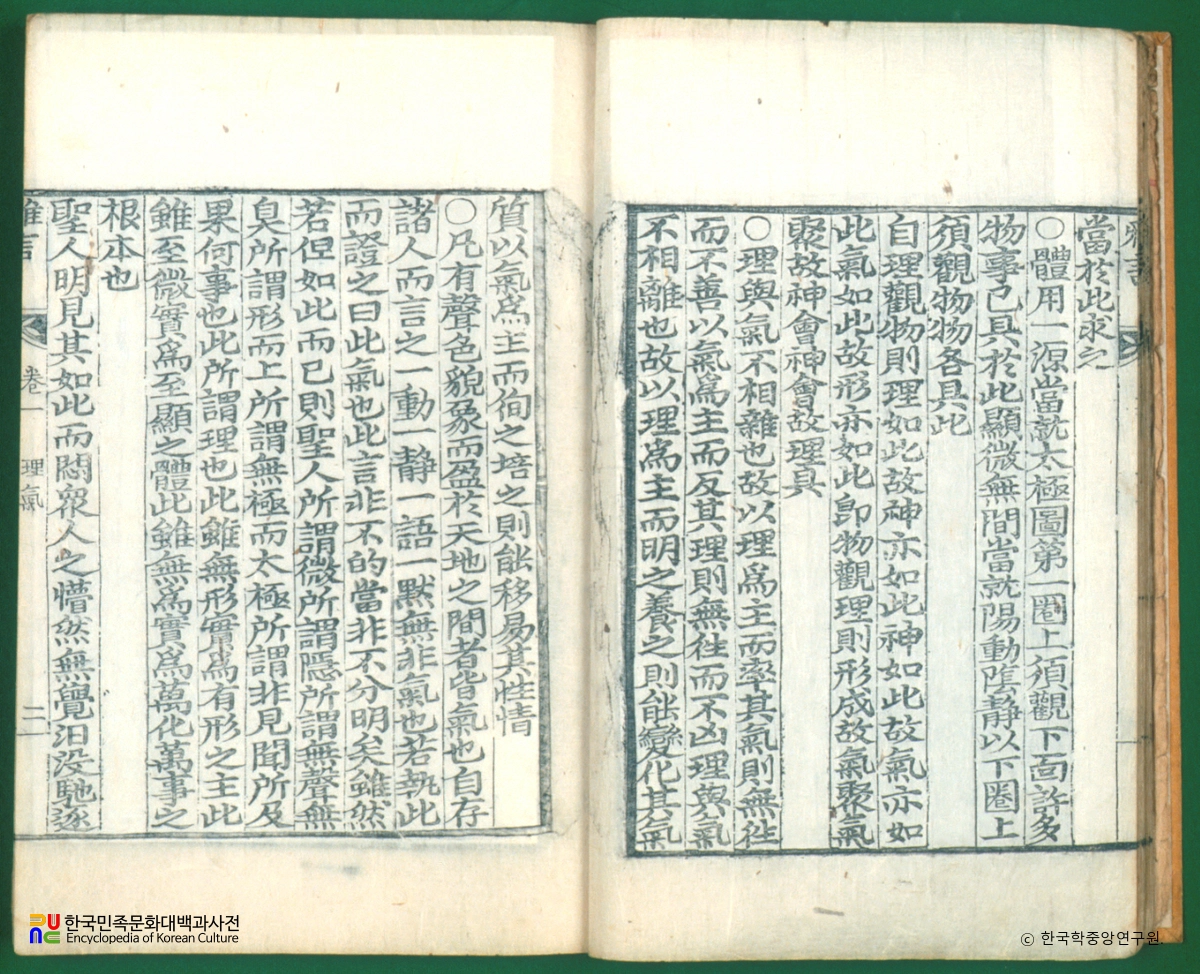 當於此求之
○體用一源當就太極圖第一圈上須觀下面許多
物事已具於此顯微無間當就陽動陰靜以下圈上
須觀物物各具此
自理觀物則理如此故神亦如此神如此故氣亦如
此氣如此故形亦如此卽物觀理則形成故氣聚氣
聚故神會神會故理具
○理與氣不相雜也故以理爲主而率其氣則無徃
而不善以氣爲主而反其理則無徃而不凶理與氣
不相離也故以理爲主而明之養之則能變化其氣
質以氣爲主而徇之培之則能移易其性情
○凡有聲色貌象而盈於天地之間者皆氣也自存
諸人而言之一動一靜一語一默無非氣也若執此
而證之曰此氣也此言非不的當非不分明矣雖然
若但如此而已則聖人所謂微所謂隱所謂無聲無
臭所謂形而上所謂無極而太極所謂非見聞所及
果何事也此所謂理也此雖無形實爲有形之主此
雖至微實爲至顯之體此雖無爲實爲萬化萬事之
根本也
聖人明見其如此而悶衆人之懵然無覺汨没馳逐
卷一 理氣 二
한국민족문화대백과사전
Encyclopedia of Korean Culture
ⓒ 한국학중앙연구원.